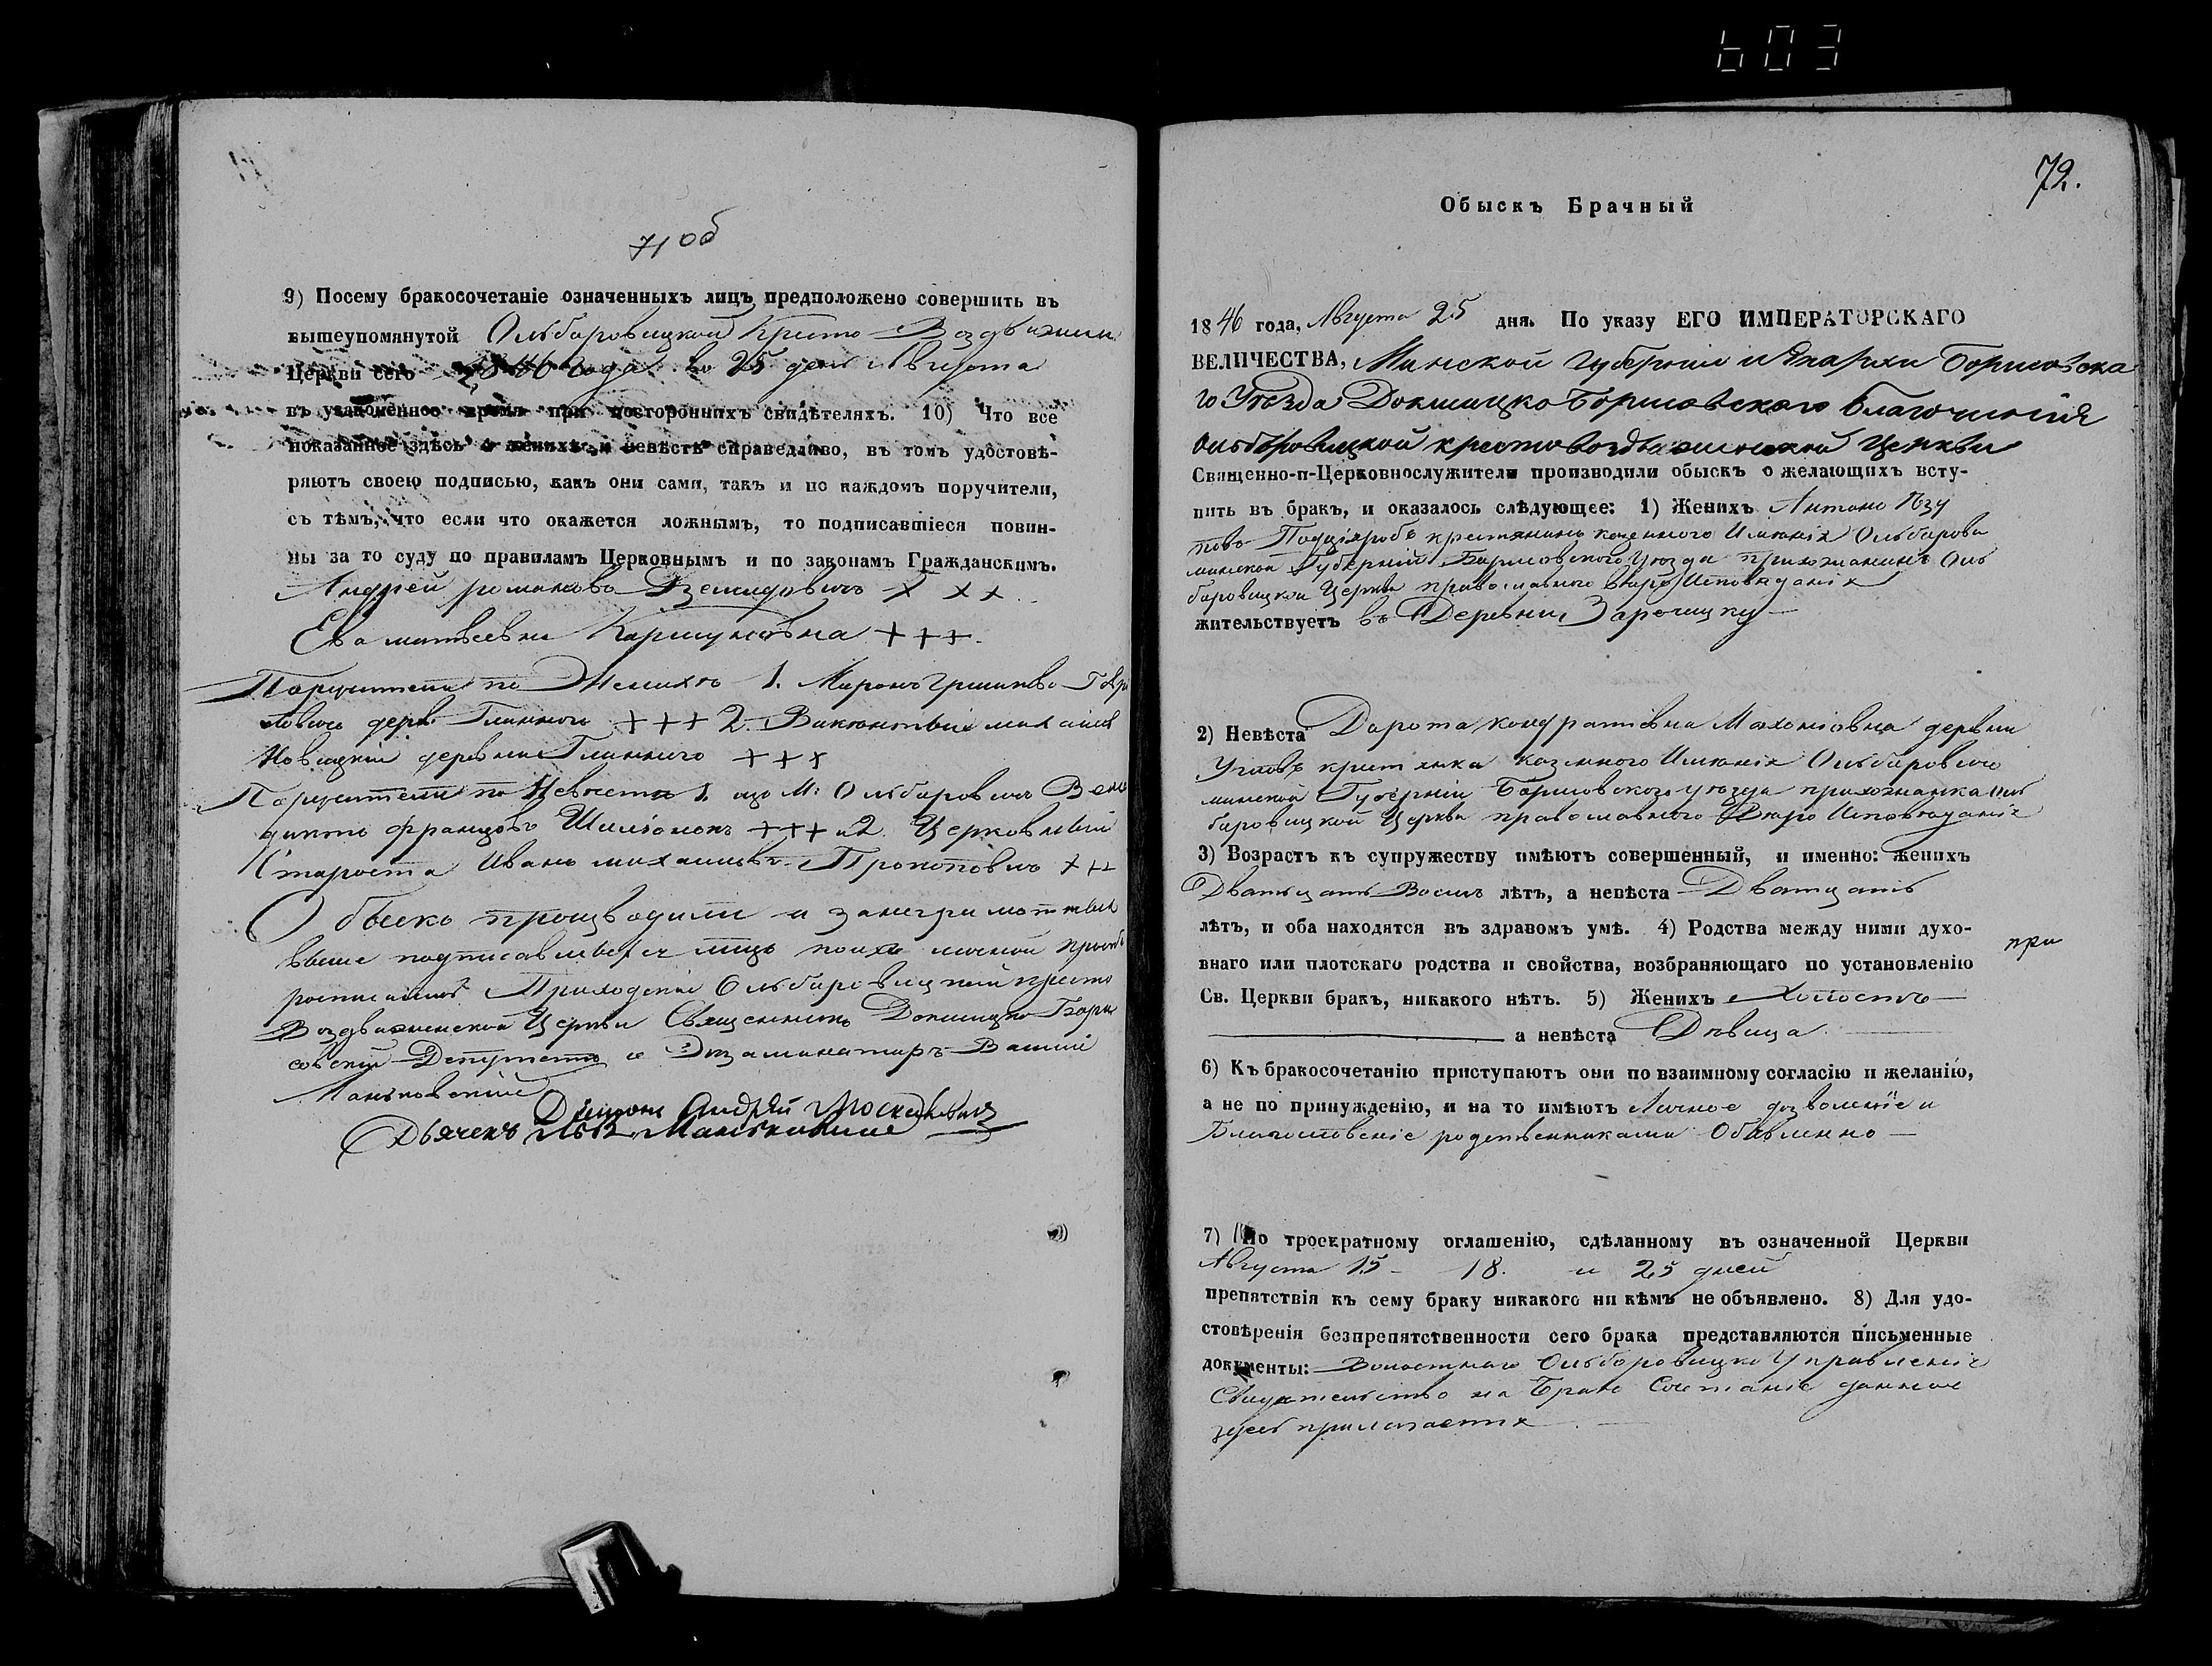 603
71 об
9) Посему бракосочетаніе означенныхъ лицъ предположено совершить въ
вышеупомянутой Ольборовицкой Кресто-Воздвижен
Церкви сего 1846 года во 25 день Августа
въ узаконенное время при постороннихъ свидѣтеляхъ. 10) Что все
показанное здѣсь о женихѣ и невѣстѣ справедливо, въ томъ удостовѣ-
ряютъ своею подписью, какъ они сами, такъ и по каждомъ поручители,
съ тѣмъ, что если что окажется ложнымъ, то подписавшіеся повин-
ны за то суду по правиламъ Церковнымъ и по законамъ Гражданскимъ.
Андрей романовъ Дземидовичъ + + +
Ева матвеевна +++
Поручители по Женихѣ 1. Миронъ
дерев Глинного +++ 2. Викентій
Новицкій деревни Глинного +++
Поручители по Невѣстѣ 1. изъ М: Ольборовичъ
францовъ +++ и 2. Церковный
Староста Иванъ михаиловъ Прокоповичъ +++
Обыскъ производили и за неграмотных
выше подписавшихся лицъ по ихъ личной прозьбѣ
росписался Приходскій Ольборовицкой кресто
Воздвиженской Церкви Священникъ Докшицко Бори
совскій Депутатъ и Экзаминаторъ
Маньковскій
Андрей
Дьячекъ Маньковскій
72.
Обыскъ Брачный
1846 года, Августа 25 дня. По указу ЕГО ИМПЕРАТОРСКАГО
ВЕЛИЧЕСТВА, Минской Губерніи и Епархіи Борисовска
го Уѣзда Докшицко Борисовского Благочинія
Ольборовицкой крестовоздвиженской Церкви
Священно-и-Церковнослужители производили обыскъ о желающихъ всту-
пить въ бракъ, и оказалось слѣдующее: 1) Женихъ Антонъ
крестьянинъ казенного Имѣнія Ольборови
минской Губерніи Борисовского уѣзда прихожанинъ Оль
боровицкой Церкви православного Вѣро Исповѣданія
жительствуетъ въ Деревни
2) Невѣста Дорота кондратовна деревни
крестьянка казенного Имѣнія Ольборовичъ
минской Губерніи Борисовского уѣзда прихожанка Оль
боровицкой Церкви православного Вѣро Исповѣданія
3) Возрастъ къ супружеству имѣютъ совершенный, и именно: женихъ
Дватцать Восимъ лѣтъ, а невѣста Дватцать
лѣтъ, и оба находятся въ здравомъ умѣ. 4) Родства между ними духо-
внаго или плотскаго родства и свойства, возбраняющаго по установленію
при
Св. Церкви бракъ, никакого нѣтъ. 5) Женихъ Холостъ
а невѣста Дѣвица
6) Къ бракосочетанію приступаютъ они по взаимному согласію и желанію,
а не по принужденію, и на то имѣютъ Личное дозволеніе и
Благословеніе родственниками Обявленно
7) По троекратному оглашенію, сдѣланному въ означенной Церкви
Августа 15 - 18. и 25 дней
препятствія къ сему браку никакого ни кѣмъ не объявлено. 8) Для удо-
стовѣренія безпрепятственности сего брака представляются письменные
документы: Волостнаго Ольборовицко Управленія
Свидетельство на Брако Сочетаніе данное
здесь прилагается